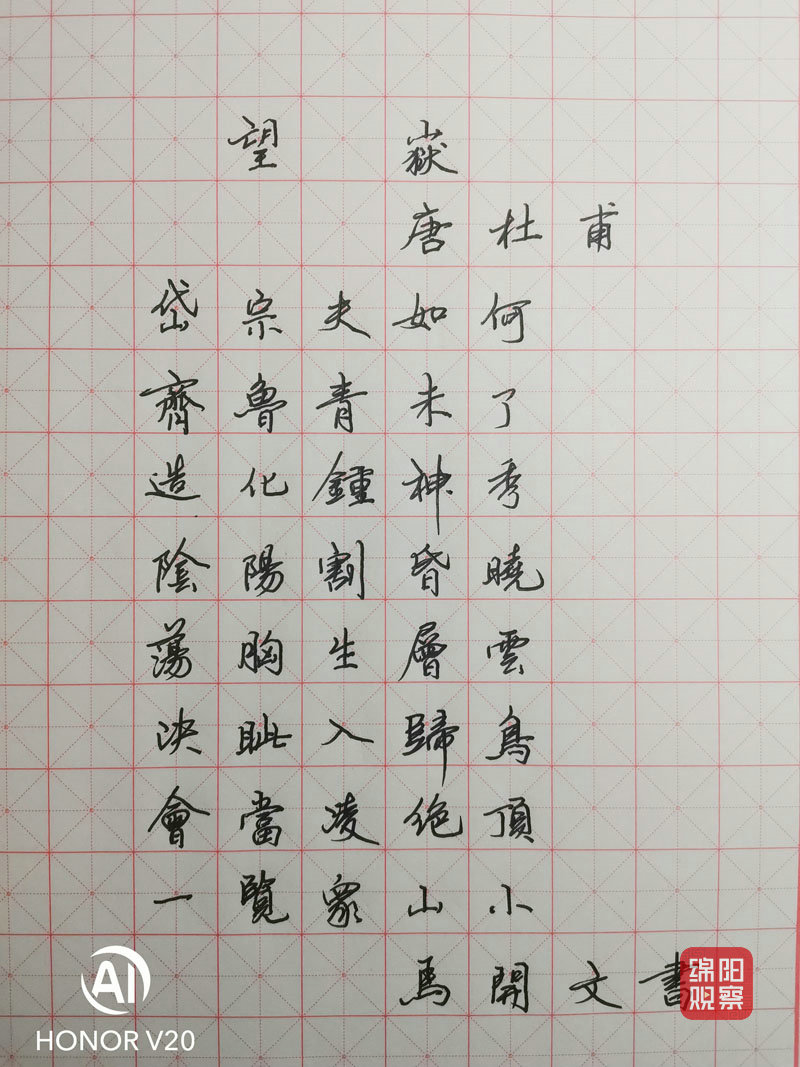 望嶽
唐杜甫
岱宗夫如何
齊魯青未了
造化鍾神秀
陰陽割昏曉
蕩胸生層雲
決眦入歸鳥
會當凌絶頂
一覽衆山小
馬開文書
绵阳观察
AI
HONOR V20